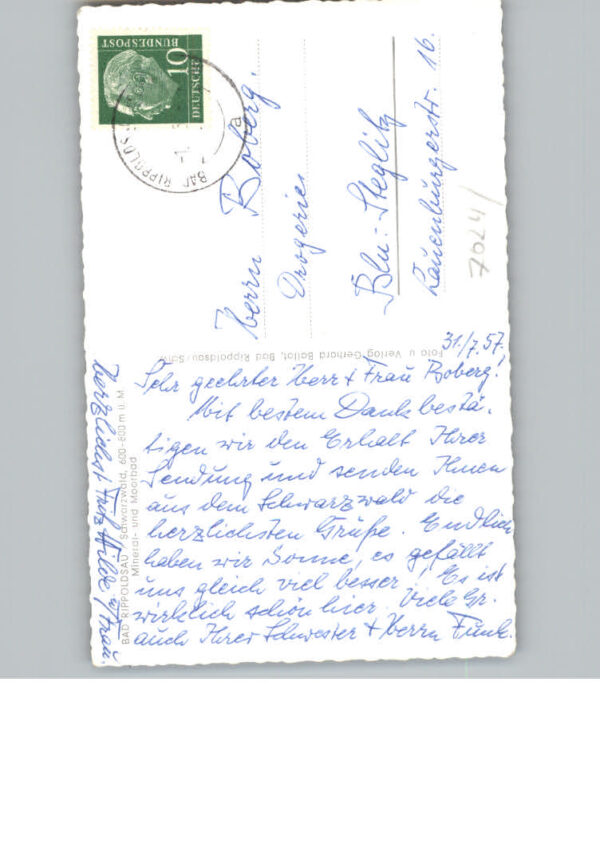 DEUTSCHE
BUNDESPOST
10
BAD RIPPOLDS
a
Herrn
Boberg.
Drogerie
Bln.-Steglitz
Lauenburgerstr. 16.
7024/
Foto u. Verlag Gerhard Ballof, Bad Rippoldsau-Schw.
31./7.57.
Sehr geehrter Herr + Frau Boberg!
Mit bestem Dank bestä-
tigen wir den Erhalt Ihrer
Sendung und senden Ihnen
aus dem Schwarzwald die
herzlichsten Grüße. Endlich
haben wir Sonne, es gefällt
uns gleich viel besser! Es ist
wirklich schön hier. Viele Gr.
auch Ihrer Schwester + Herrn Funk.
herzlichst Fritz Hilde u. Frau.
BAD RIPPOLDSAU - Schwarzwald, 600-800 m ü. M.
Mineral- und Moorbad